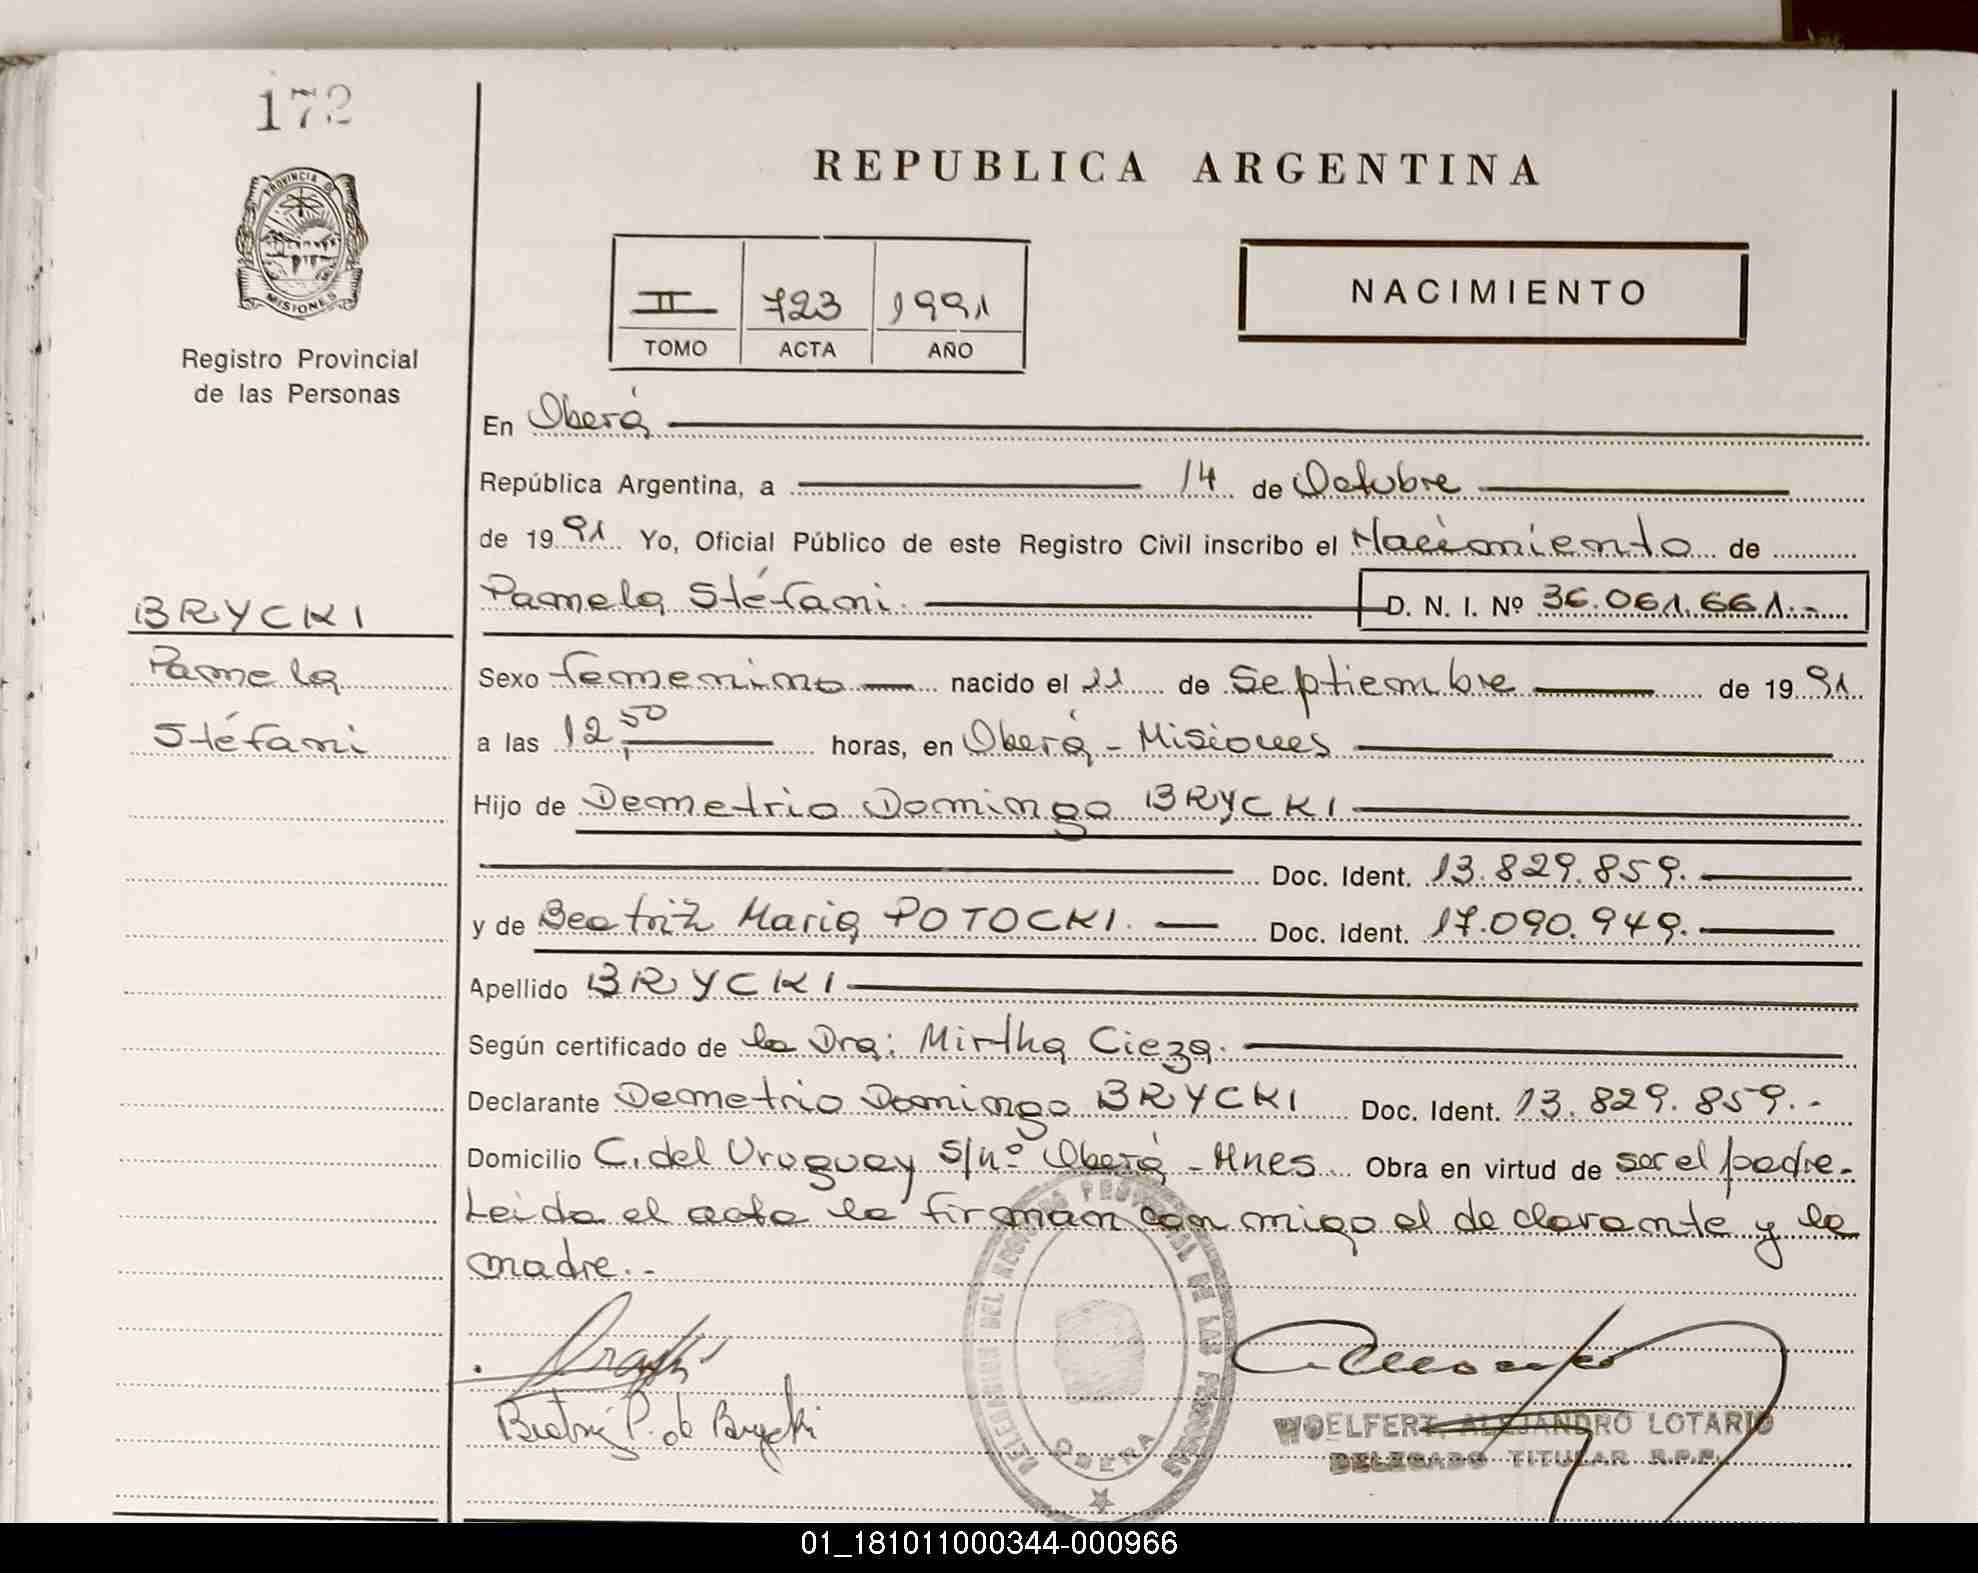 172
REPUBLICA ARGENTINA
PROVINCIA D
MISIONES
II 723 1991
TOMO ACTA AÑO
NACIMIENTO
Registro Provincial
de las Personas
En Oberá
República Argentina, a 14 de Octubre
de 1991 Yo, Oficial Público de este Registro Civil inscribo el Nacimiento de
Pamela Stéfani. D. N. I. Nº 36.061.661.-
BRYCKI
Pamela
Stéfani
Sexo femenino nacido el 11 de Septiembre de 1991
a las 12,50 horas, en Oberá - Misiones
Hijo de Demetrio Domingo BRYCKI
Doc. Ident. 13.829.859.
y de Beatriz Maria POTOCKI. Doc. Ident. 17.090.949.
Apellido BRYCKI
Según certificado de la Dra: Mirtha Cieza.
Declarante Demetrio Domingo BRYCKI Doc. Ident. 13.829.859.-
Domicilio C. del Uruguay s/nº Oberá - Mnes Obra en virtud de ser el padre.
Leida el acta la firman con migo el declarante y la
madre.-
DELEGACION DEL REGISTRO PROVINCIAL DE LAS PERSONAS
OBERA
Beatriz P. de Brycki
WOELFERT, ALEJANDRO LOTARIO
DELEGADO TITULAR R.P.P.
01_181011000344-000966